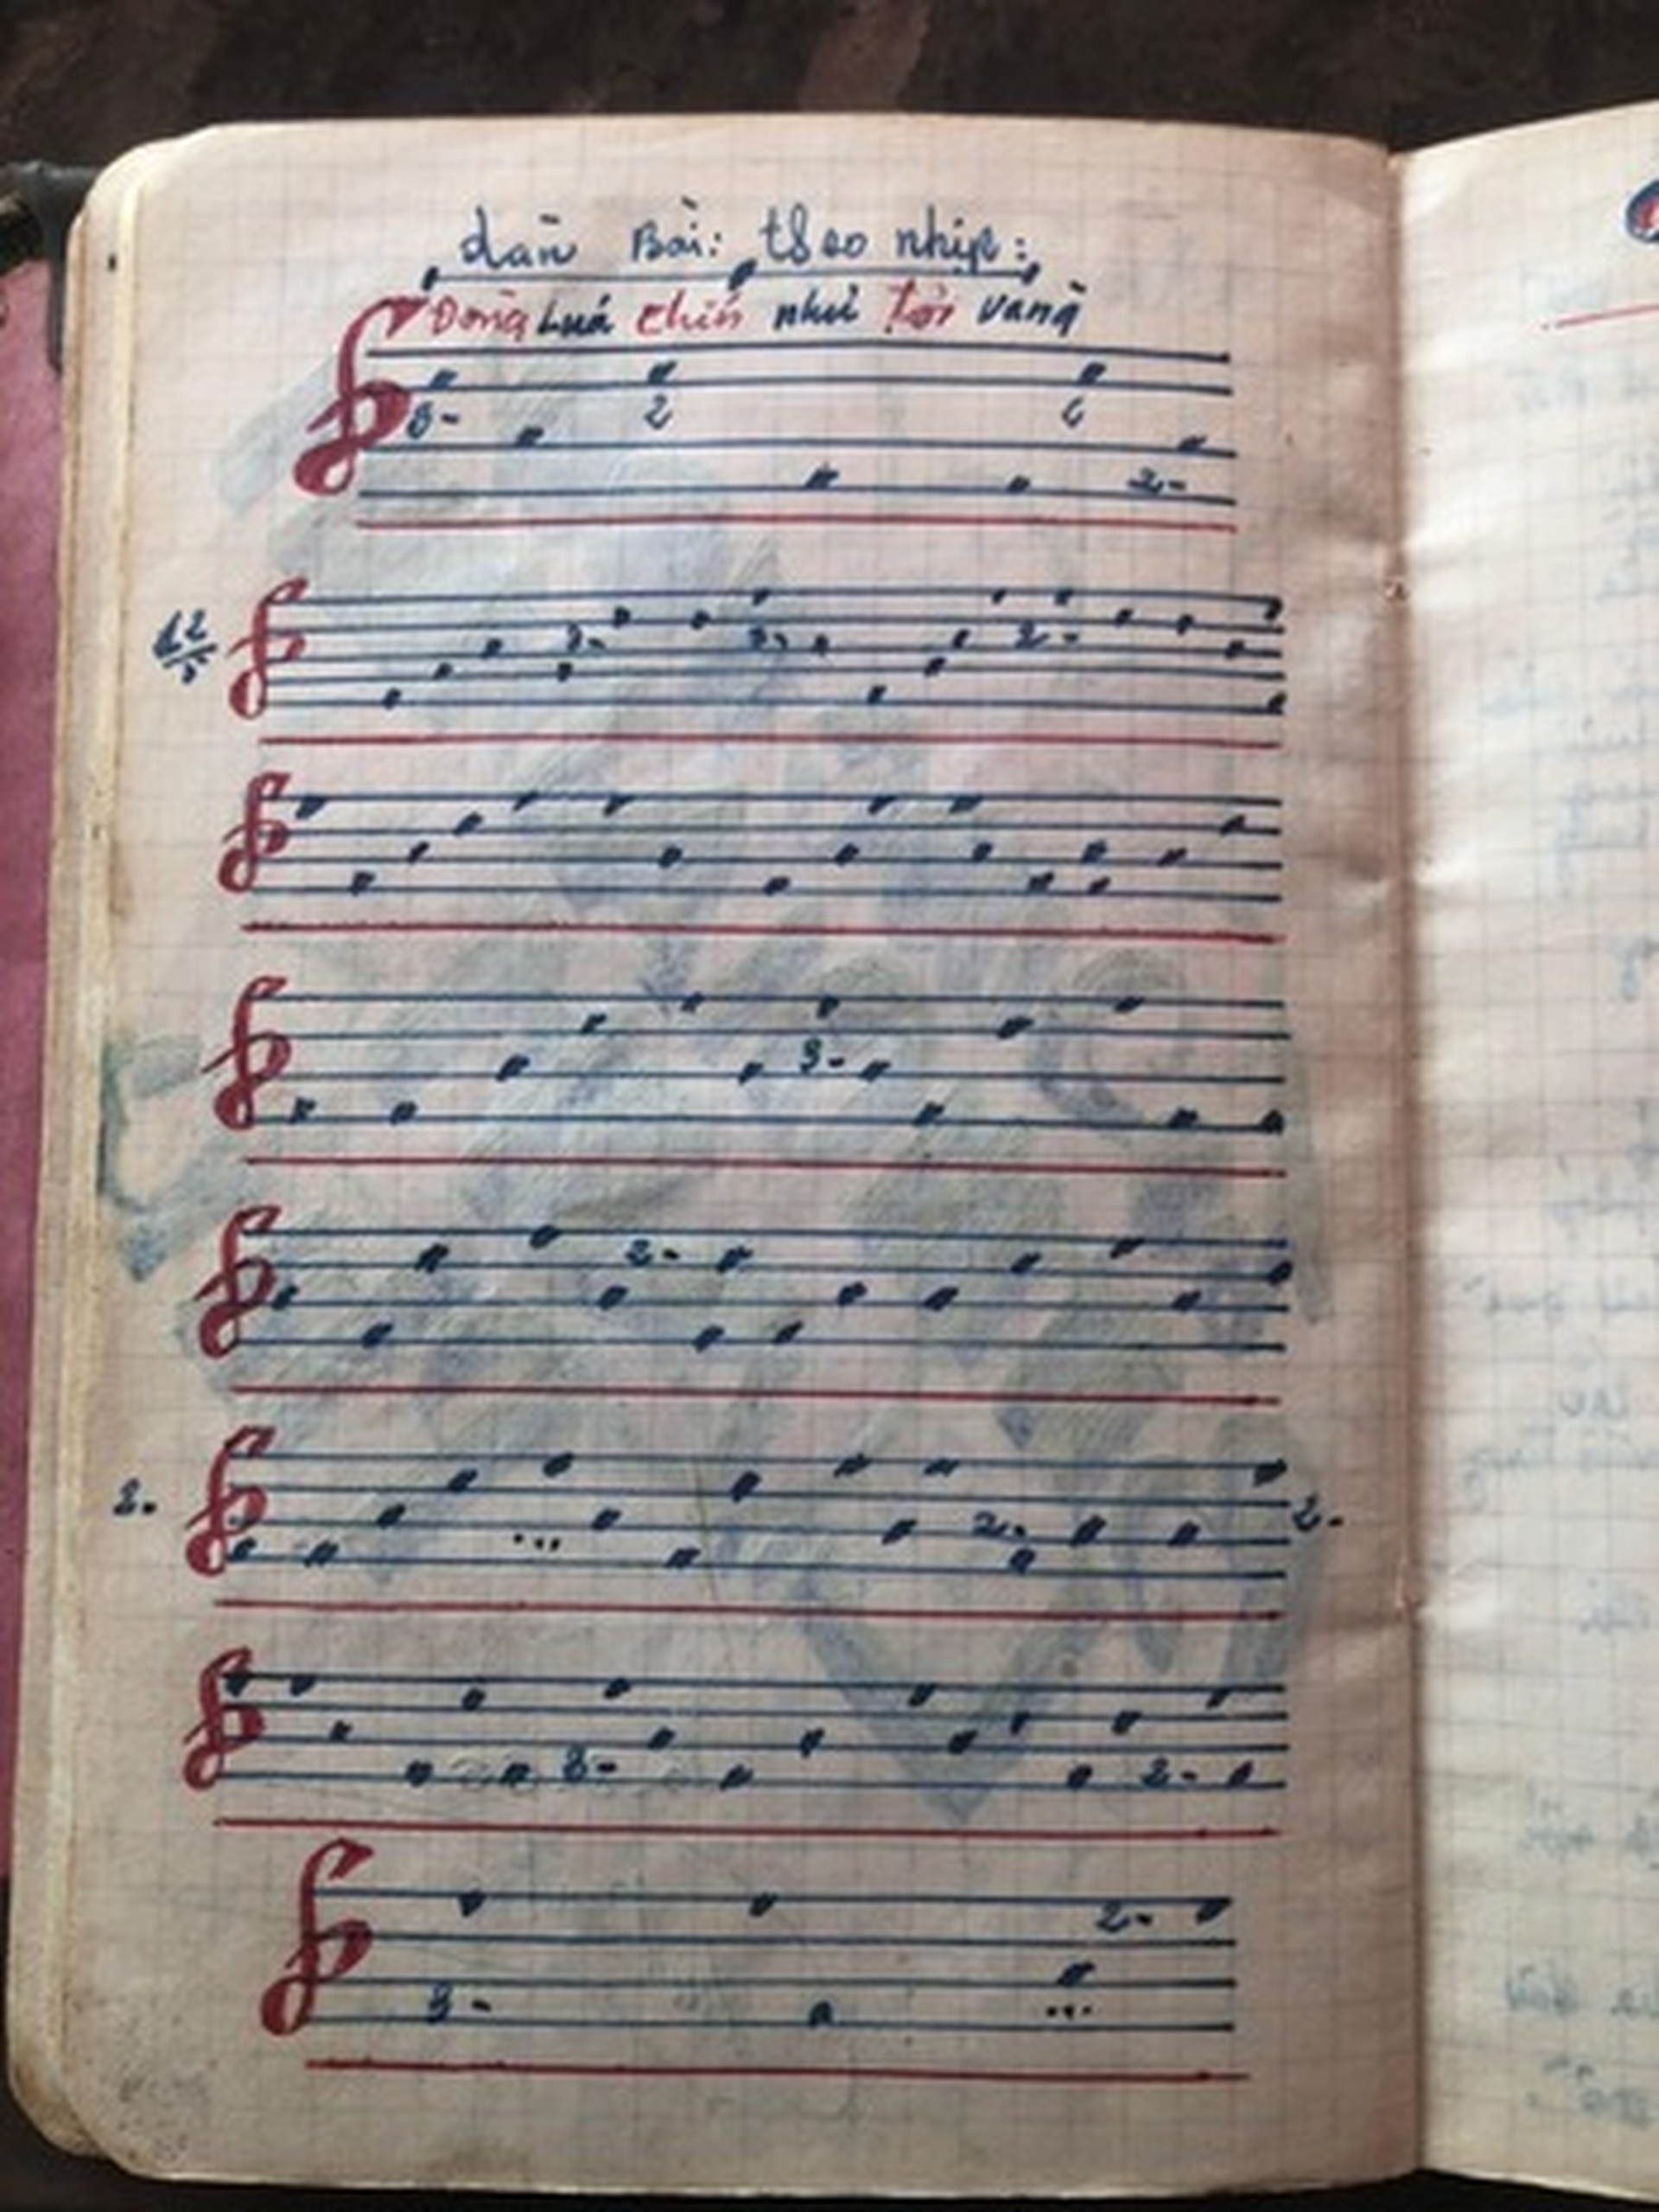 đàn Bài: theo nhịp:
Đồng Lúa chín như tơi vang
3- 2 2
2-
3- 3- 2-
3-
2-
2. 2- 2-
3- 2-
2-
3-